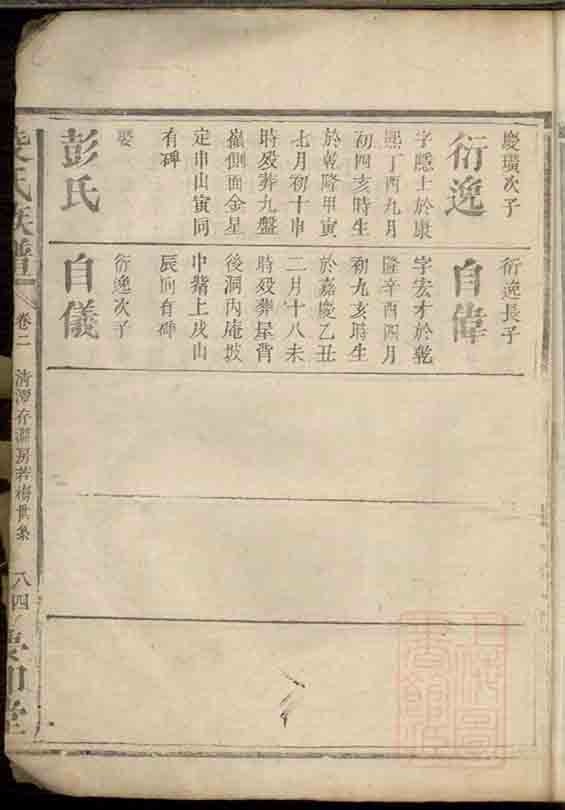 慶璜次子
衍逸
字隱士於康
熙丁酉九月
初四亥時生
於乾隆甲寅
七月初十申
時歿葬九盤
嶺側面金星
定申山寅向
有碑
娶
彭氏
衍逸長子
自偉
字宏才於乾
隆辛酉四月
初九亥時生
於嘉慶乙丑
二月十八未
時歿葬星背
後洞內庵坡
中嘴上戌山
辰向有碑
衍逸次子
自儀
氏族譜
卷二
清潭存淵房若梅世系
八四
堂